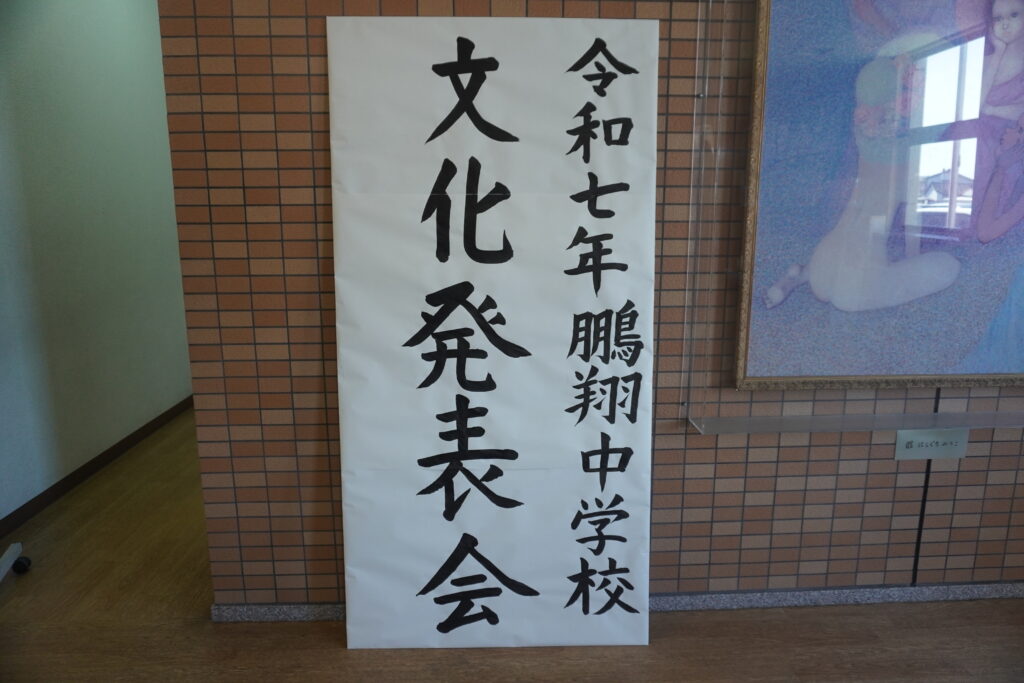 令和七年 鵬翔中学校
文化発表会